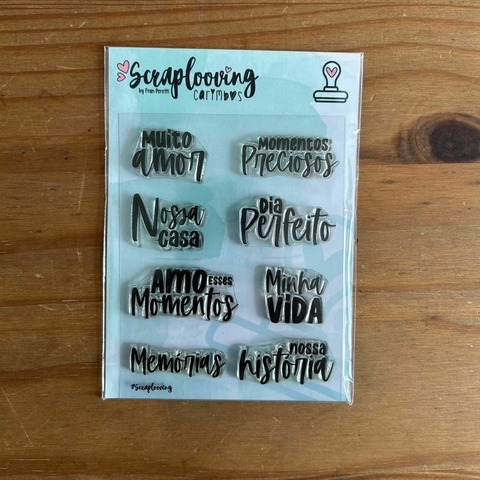 Scraplooving
by Fran Peretti
Carimbos
Muito
amor
Momentos
Preciosos
Nossa
casa
Dia
Perfeito
AMO ESSES
Momentos
Minha
ViDA
Memórias
nossa
história
#Scraplooving